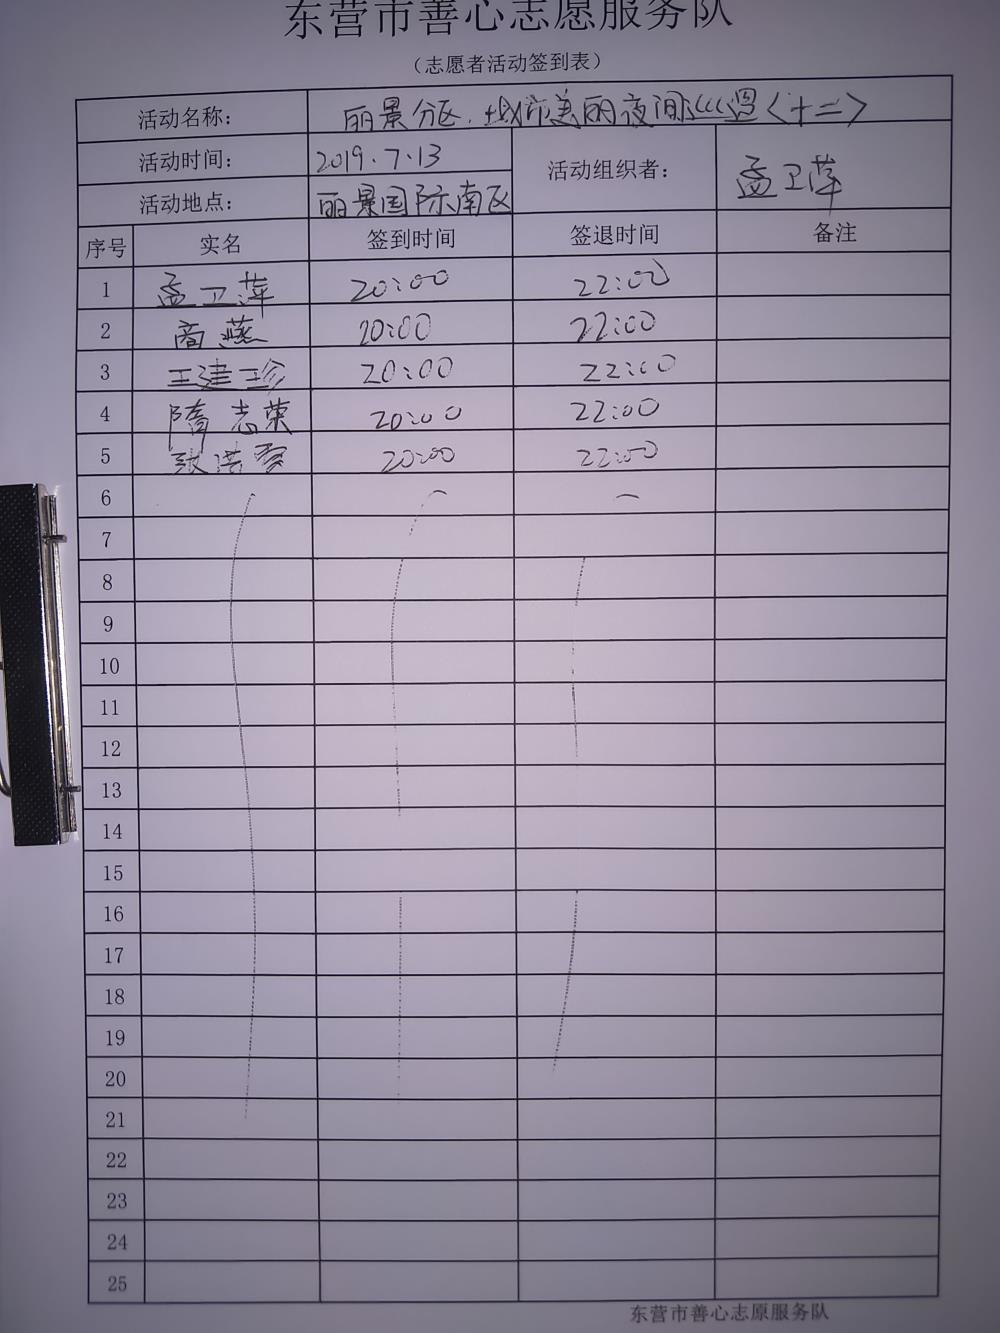 东营市善心志愿服务队
（志愿者活动签到表）
活动名称： 丽景分区、城市美丽夜间巡逻〈十二〉
活动时间： 2019.7.13 活动组织者： 孟卫萍
活动地点： 丽景国际南区
序号 实名 签到时间 签退时间 备注
1 孟卫萍 20:00 22:00
2 商燕 20:00 22:00
3 王建珍 20:00 22:00
4 隋志荣 20:00 22:00
5 张洪雪 20:00 22:00
6
7
8
9
10
11
12
13
14
15
16
17
18
19
20
21
22
23
24
25
东营市善心志原服务队